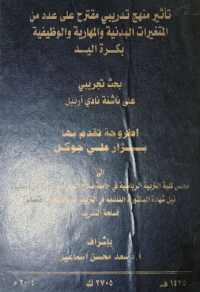 تأثير منهج تدريبي مقترح على عدد من
المتغيرات البدنية والمهارية والوظيفية
بكرة اليد
بحث تجريبي
على ناشئة نادي أربيل
اطروحة تقدم بها
بزار علي جوكل
إلى
مجلس كلية التربية الرياضية في جامعة صلاح الدين
نيل شهادة الدكتوراه فلسفة في التربية الرياضية
فلسفة التدريب
بإشراف
أ.د سعد محسن اسماعيل
١٤٢٥ هـ ٢٧٠٥ ك ٢٠٠٤ م